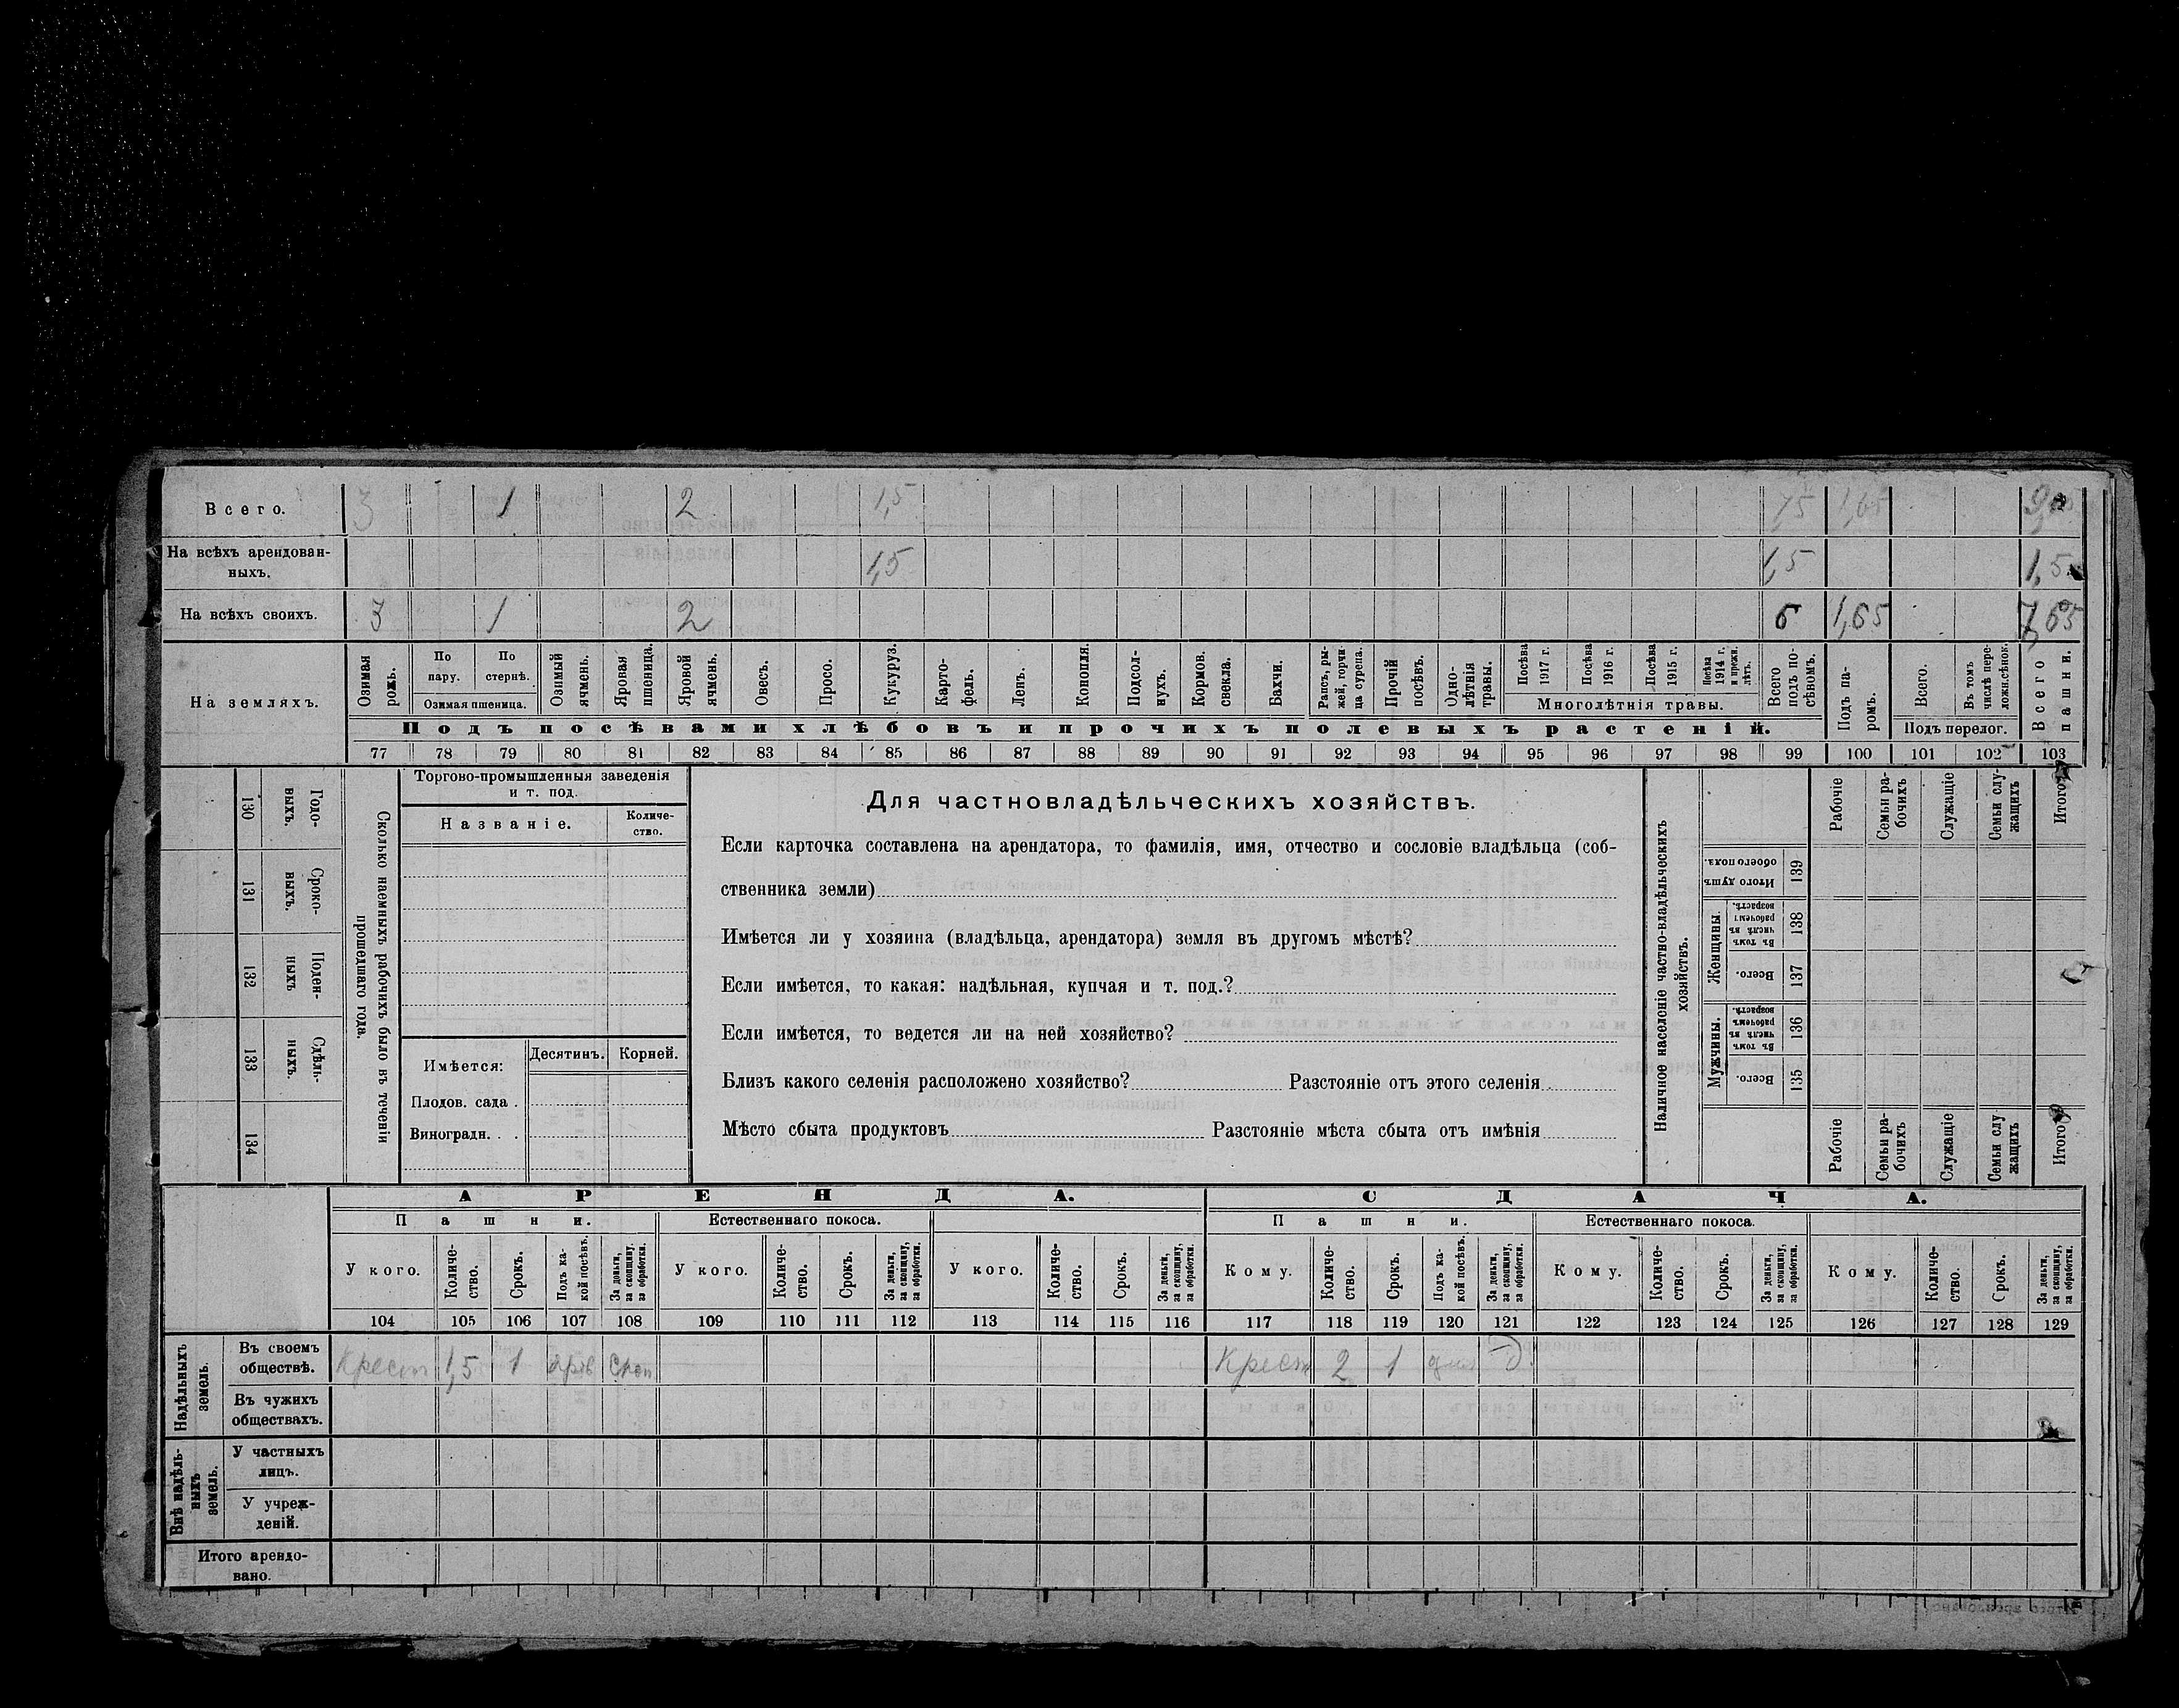 Всего. 3 1 2 1,5 7,5 1,65
На всѣхъ арендован-
ныхъ. 1,5 1,5 1,5
На всѣхъ своихъ. 3 1 2 6 1,65 7,65
На земляхъ.
Озимая
рожь.
По
пару.
По
стернѣ.
Озимая пшеница.
Озимый
ячмень.
Яровая
пшеница.
Яровой
ячмень.
Овесъ.
Просо.
Кукуруз.
Карто-
фель.
Ленъ.
Конопля.
Подсол-
нухъ.
Кормов.
свекла.
Бахчи.
Рапсъ, ры-
жей, горчи-
ца сурепа.
Прочій
посѣвъ.
Одно-
лѣтнія
травы.
Посѣва
1917 г.
Посѣва
1916 г.
Посѣва
1915 г.
Посѣва
1914 г.
и прежн.
лѣтъ.
Многолѣтнія травы.
Всего
подъ по-
сѣвомъ.
Подъ па-
ромъ.
Всего.
Въ томъ
числѣ пере-
ложн.сѣнок.
Подъ перелог.
Всего
пашни.
Подъ посѣвами хлѣбовъ и прочихъ полевыхъ растеній.
77 78 79 80 81 82 83 84 85 86 87 88 89 90 91 92 93 94 95 96 97 98 99 100 101 102 103
Годо-
выхъ.
130
Сроко-
выхъ.
131
Поден-
ныхъ
132
Сдѣль-
ныхъ.
133
134
Сколько наемныхъ рабочихъ было въ теченіи
прошедшаго года.
Торгово-промышленныя заведенія
и т. под.
Названіе.
Количе-
ство.
Имѣется:
Десятинъ. Корней.
Плодов. сада .
Виноградн. . .
Для частновладѣльческихъ хозяйствъ.
Если карточка составлена на арендатора, то фамилія, имя, отчество и сословіе владѣльца (соб-
ственника земли)
Имѣется ли у хозяина (владѣльца, арендатора) земля въ другомъ мѣстѣ?
Если имѣется, то какая: надѣльная, купчая и т. под.?
Если имѣется, то ведется ли на ней хозяйство?
Близъ какого селенія расположено хозяйство? Разстояніе отъ этого селенія
Мѣсто сбыта продуктовъ Разстояніе мѣста сбыта отъ имѣнія
Наличное населеніе частно-владѣльческихъ
хозяйствъ.
Рабочіе
Семьи ра-
бочихъ
Служащіе
Семьи слу-
жащихъ
Итого
Итого душъ
обоего пола.
139
Женщины.
Въ томъ
числѣ въ
рабочемъ
возрастѣ.
138
Всего.
137
Мужчины.
Въ томъ
числѣ въ
рабочемъ
возрастѣ.
136
Всего.
135
Рабочіе
Семьи ра-
бочихъ
Служащіе
Семьи слу
жащихъ
Итого
АРЕНДА. СДАЧА.
Пашни. Естественнаго покоса. Пашни. Естественнаго покоса.
У кого.
Количе-
ство.
Срокъ.
Подъ ка-
кой посѣвъ.
За деньги,
за скопщину,
за обработки.
У кого.
Количе-
ство.
Срокъ.
За деньги,
за скопщину,
за обработки.
У кого.
Количе-
ство.
Срокъ.
За деньги,
за скопщину,
за обработки.
Кому.
Количе-
ство.
Срокъ.
Подъ ка-
кой посѣвъ.
За деньги,
за скопщину,
за обработки.
Кому.
Количе-
ство.
Срокъ.
За деньги,
за скопщину,
за обработки.
Кому.
Количе-
ство.
Срокъ.
За деньги,
за скопщину,
за обработки.
104 105 106 107 108 109 110 111 112 113 114 115 116 117 118 119 120 121 122 123 124 125 126 127 128 129
Надѣльныхъ
земель.
Въ своемъ
обществѣ. Крест 1,5 1 Скоп Крест 2 1 д.
Въ чужихъ
обществахъ.
Внѣ надѣль-
ныхъ
земель.
У частныхъ
лицъ.
У учреж-
деній.
Итого арендо-
вано.